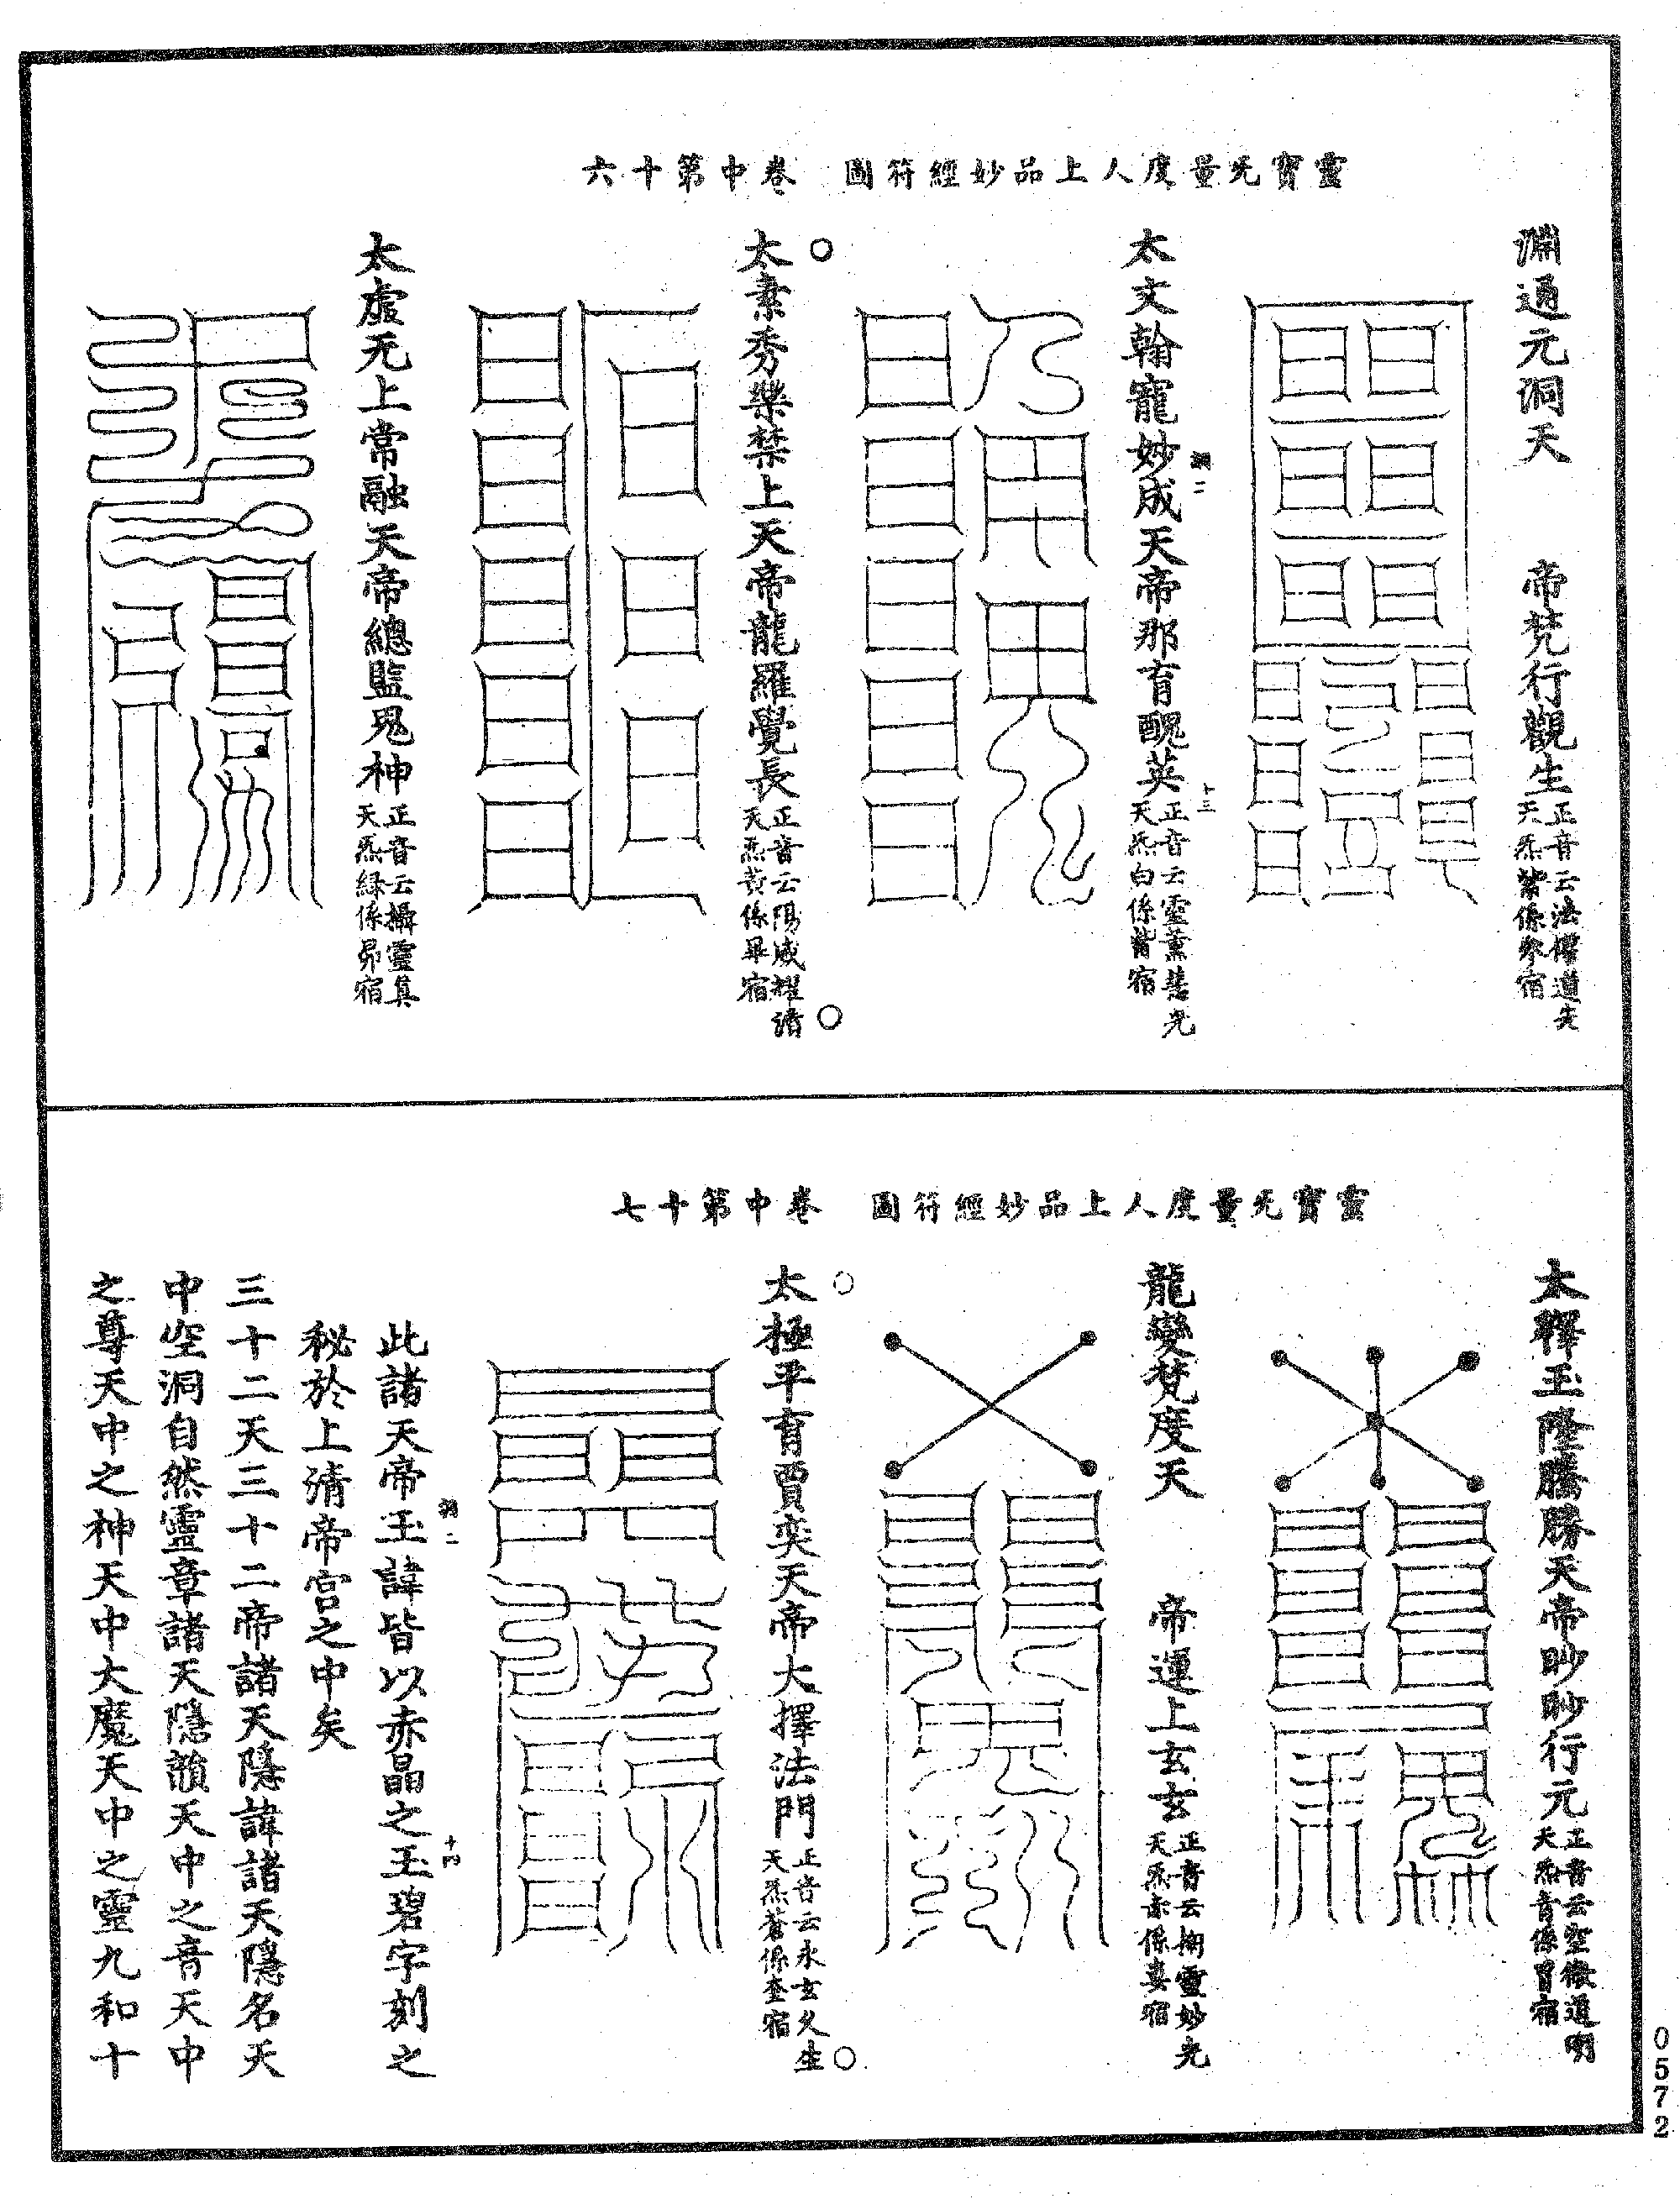 靈寶无量度人上品妙經符圖　卷中第十六
淵通元洞天　帝梵行觀生
正音云法
天炁紫係參宿
太文翰寵妙成天帝那育醜英
正音云靈薰慧光
天炁白係觜宿
洞二
十三
太素秀樂禁上天帝龍羅覺長
正音云陽威耀清
天炁黃係畢宿
太虛无上常融天帝總監鬼神
正音云攝靈真
天炁綠係昴宿
靈寶无量度人上品妙經符圖　卷中第十七
太釋玉隆騰勝天帝眇眇行元
正音云空微通明
天炁青係胃宿
龍變梵度天　帝運上玄玄
正音云掬靈妙光
天炁赤係婁宿
太極平育賈奕天帝大擇法門
正音云永玄久生
天炁蒼係奎宿
洞二
十四
此諸天帝玉諱皆以赤晶之玉碧字刻之
秘於上清帝宮之中矣
三十二天三十二帝諸天隱諱諸天隱名天
中空洞自然靈章諸天隱韻天中之音天中
之尊天中之神天中大魔天中之靈九和十
0572